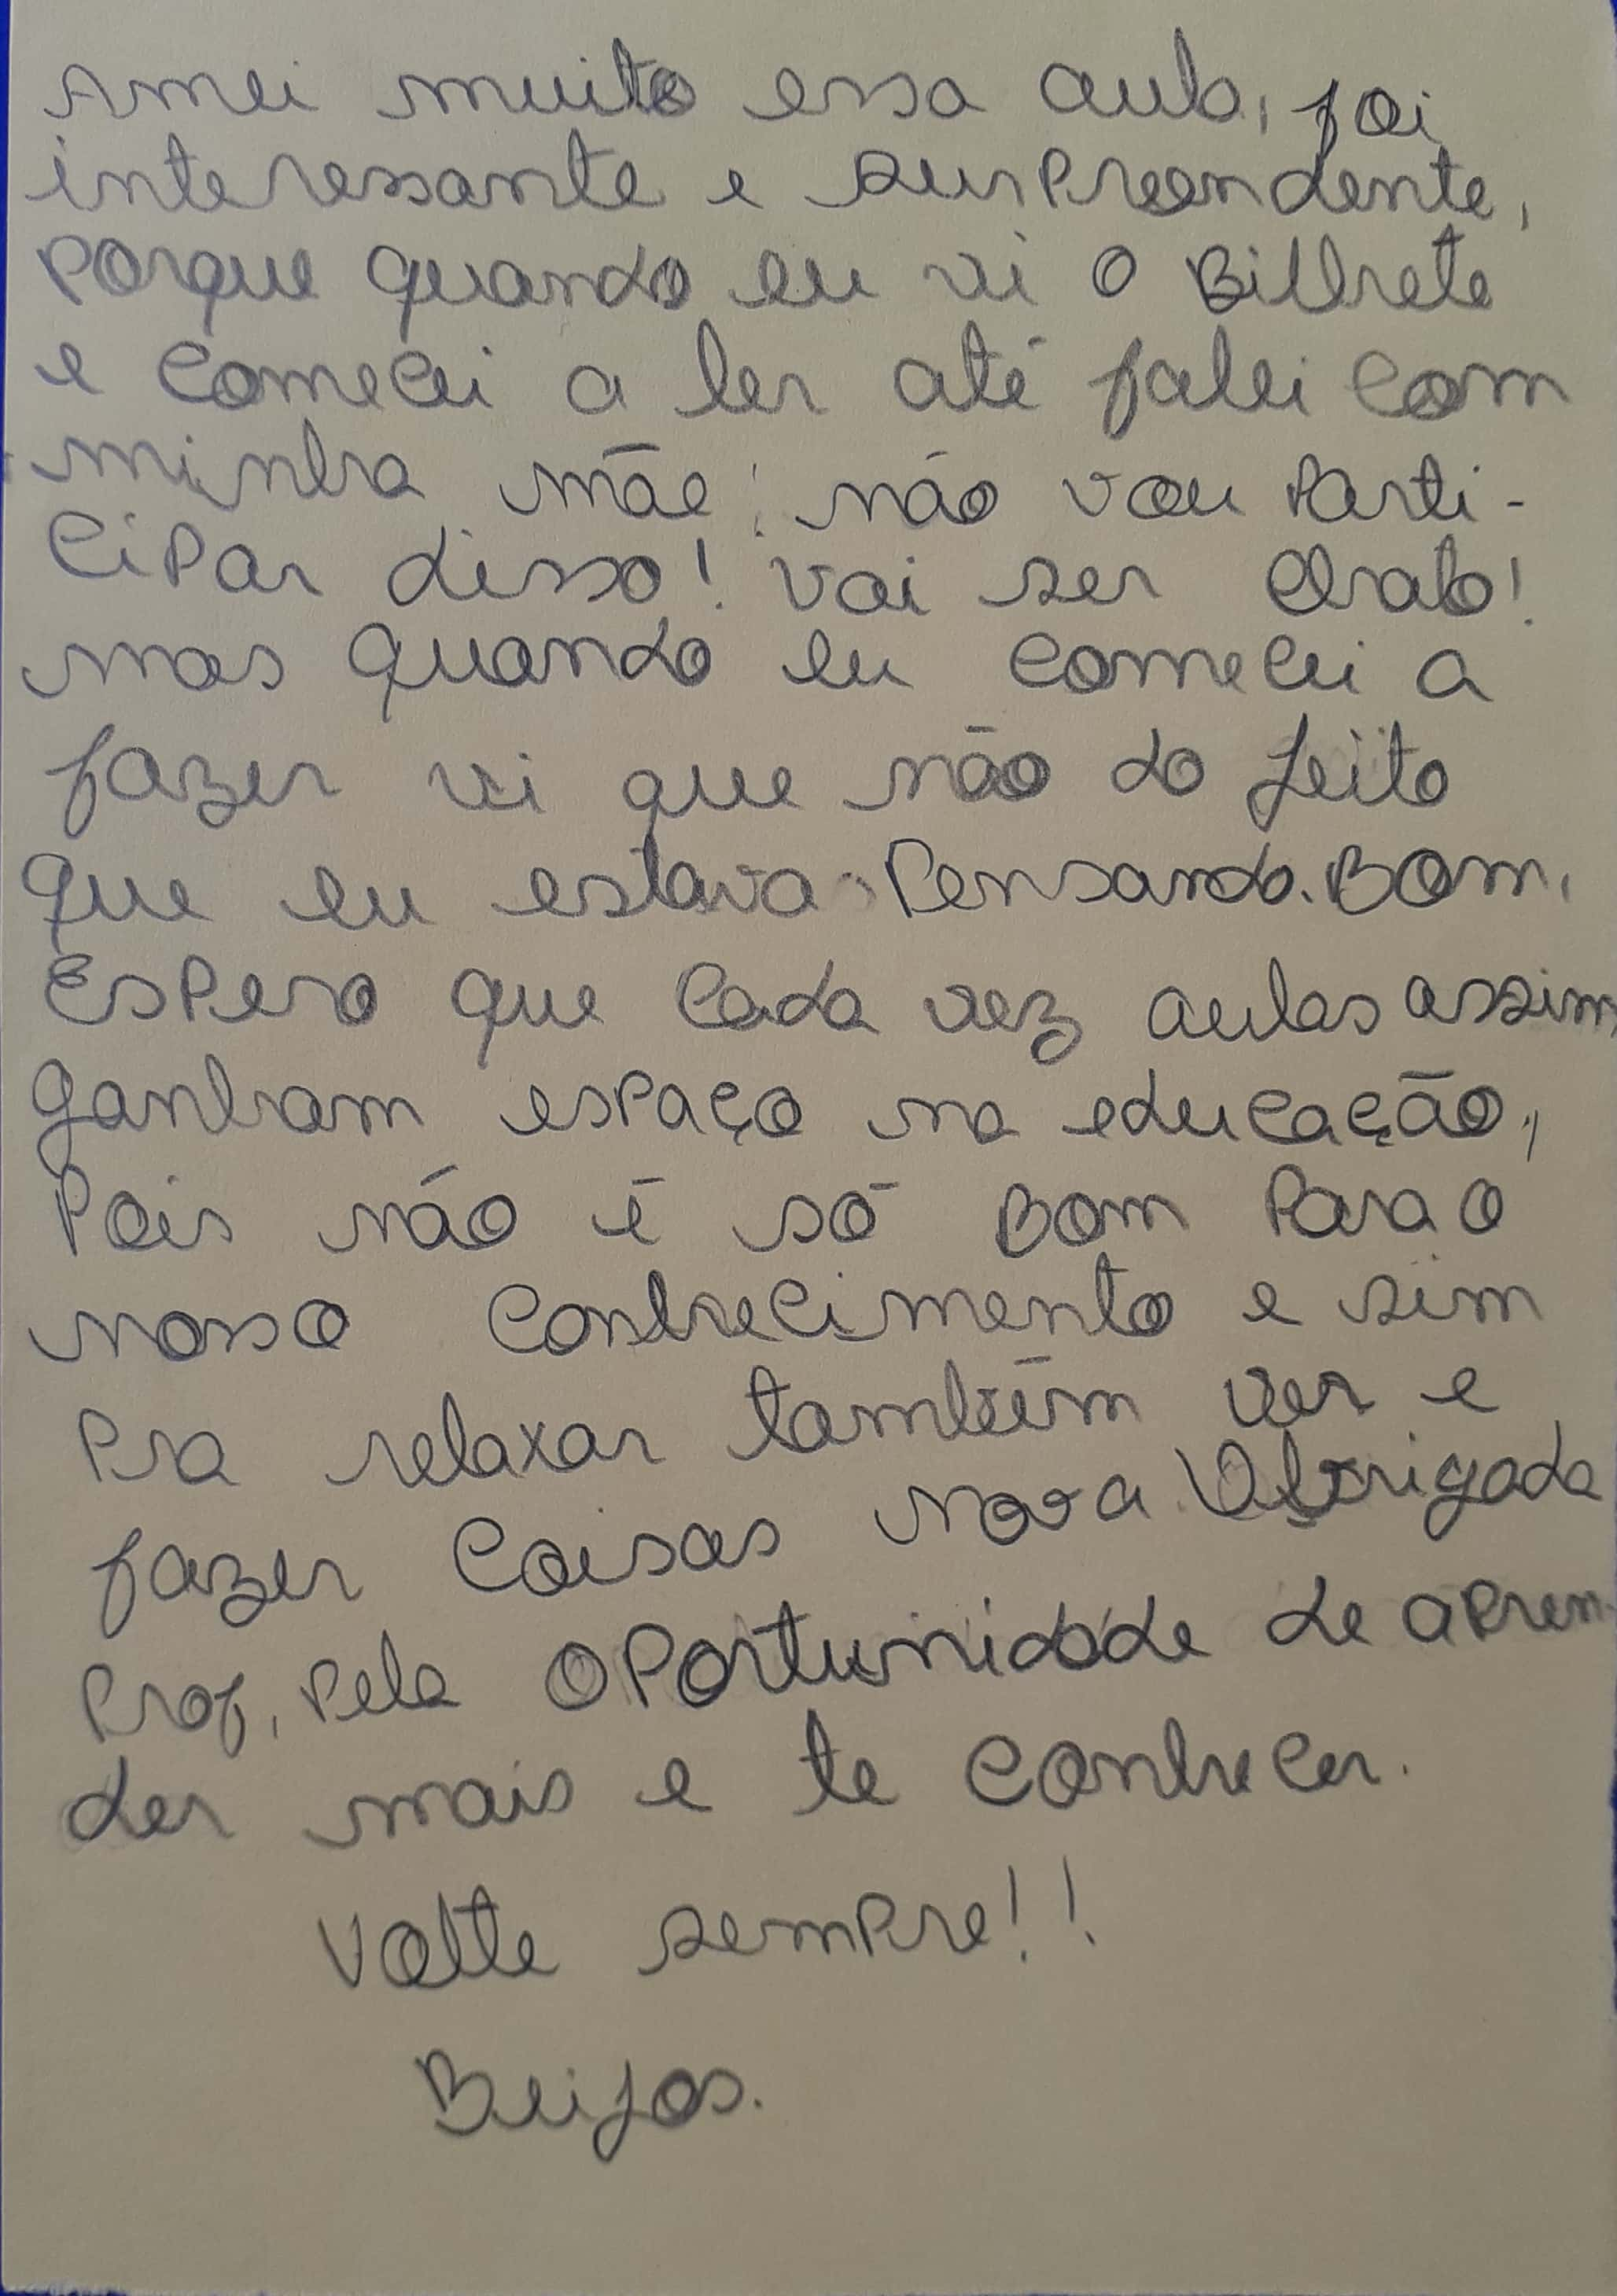 Amei muito essa aula, foi
interessante e surpreendente,
porque quando eu vi o Bilhete
e comecei a ler até falei com
minha mãe: não vou parti-
cipar disso! vai ser chato!
mas quando eu comecei a
fazer vi que não do jeito
que eu estava pensando. Bom,
Espero que cada vez aulas assim
ganham espaço na educação,
Pois não é só Bom para o
nosso conhecimento e sim
pra relaxar também ver e
fazer coisas nova. Obrigada
prof, pela oportunidade de apren-
der mais e te conhecer.
Volte sempre!!
Beijos.